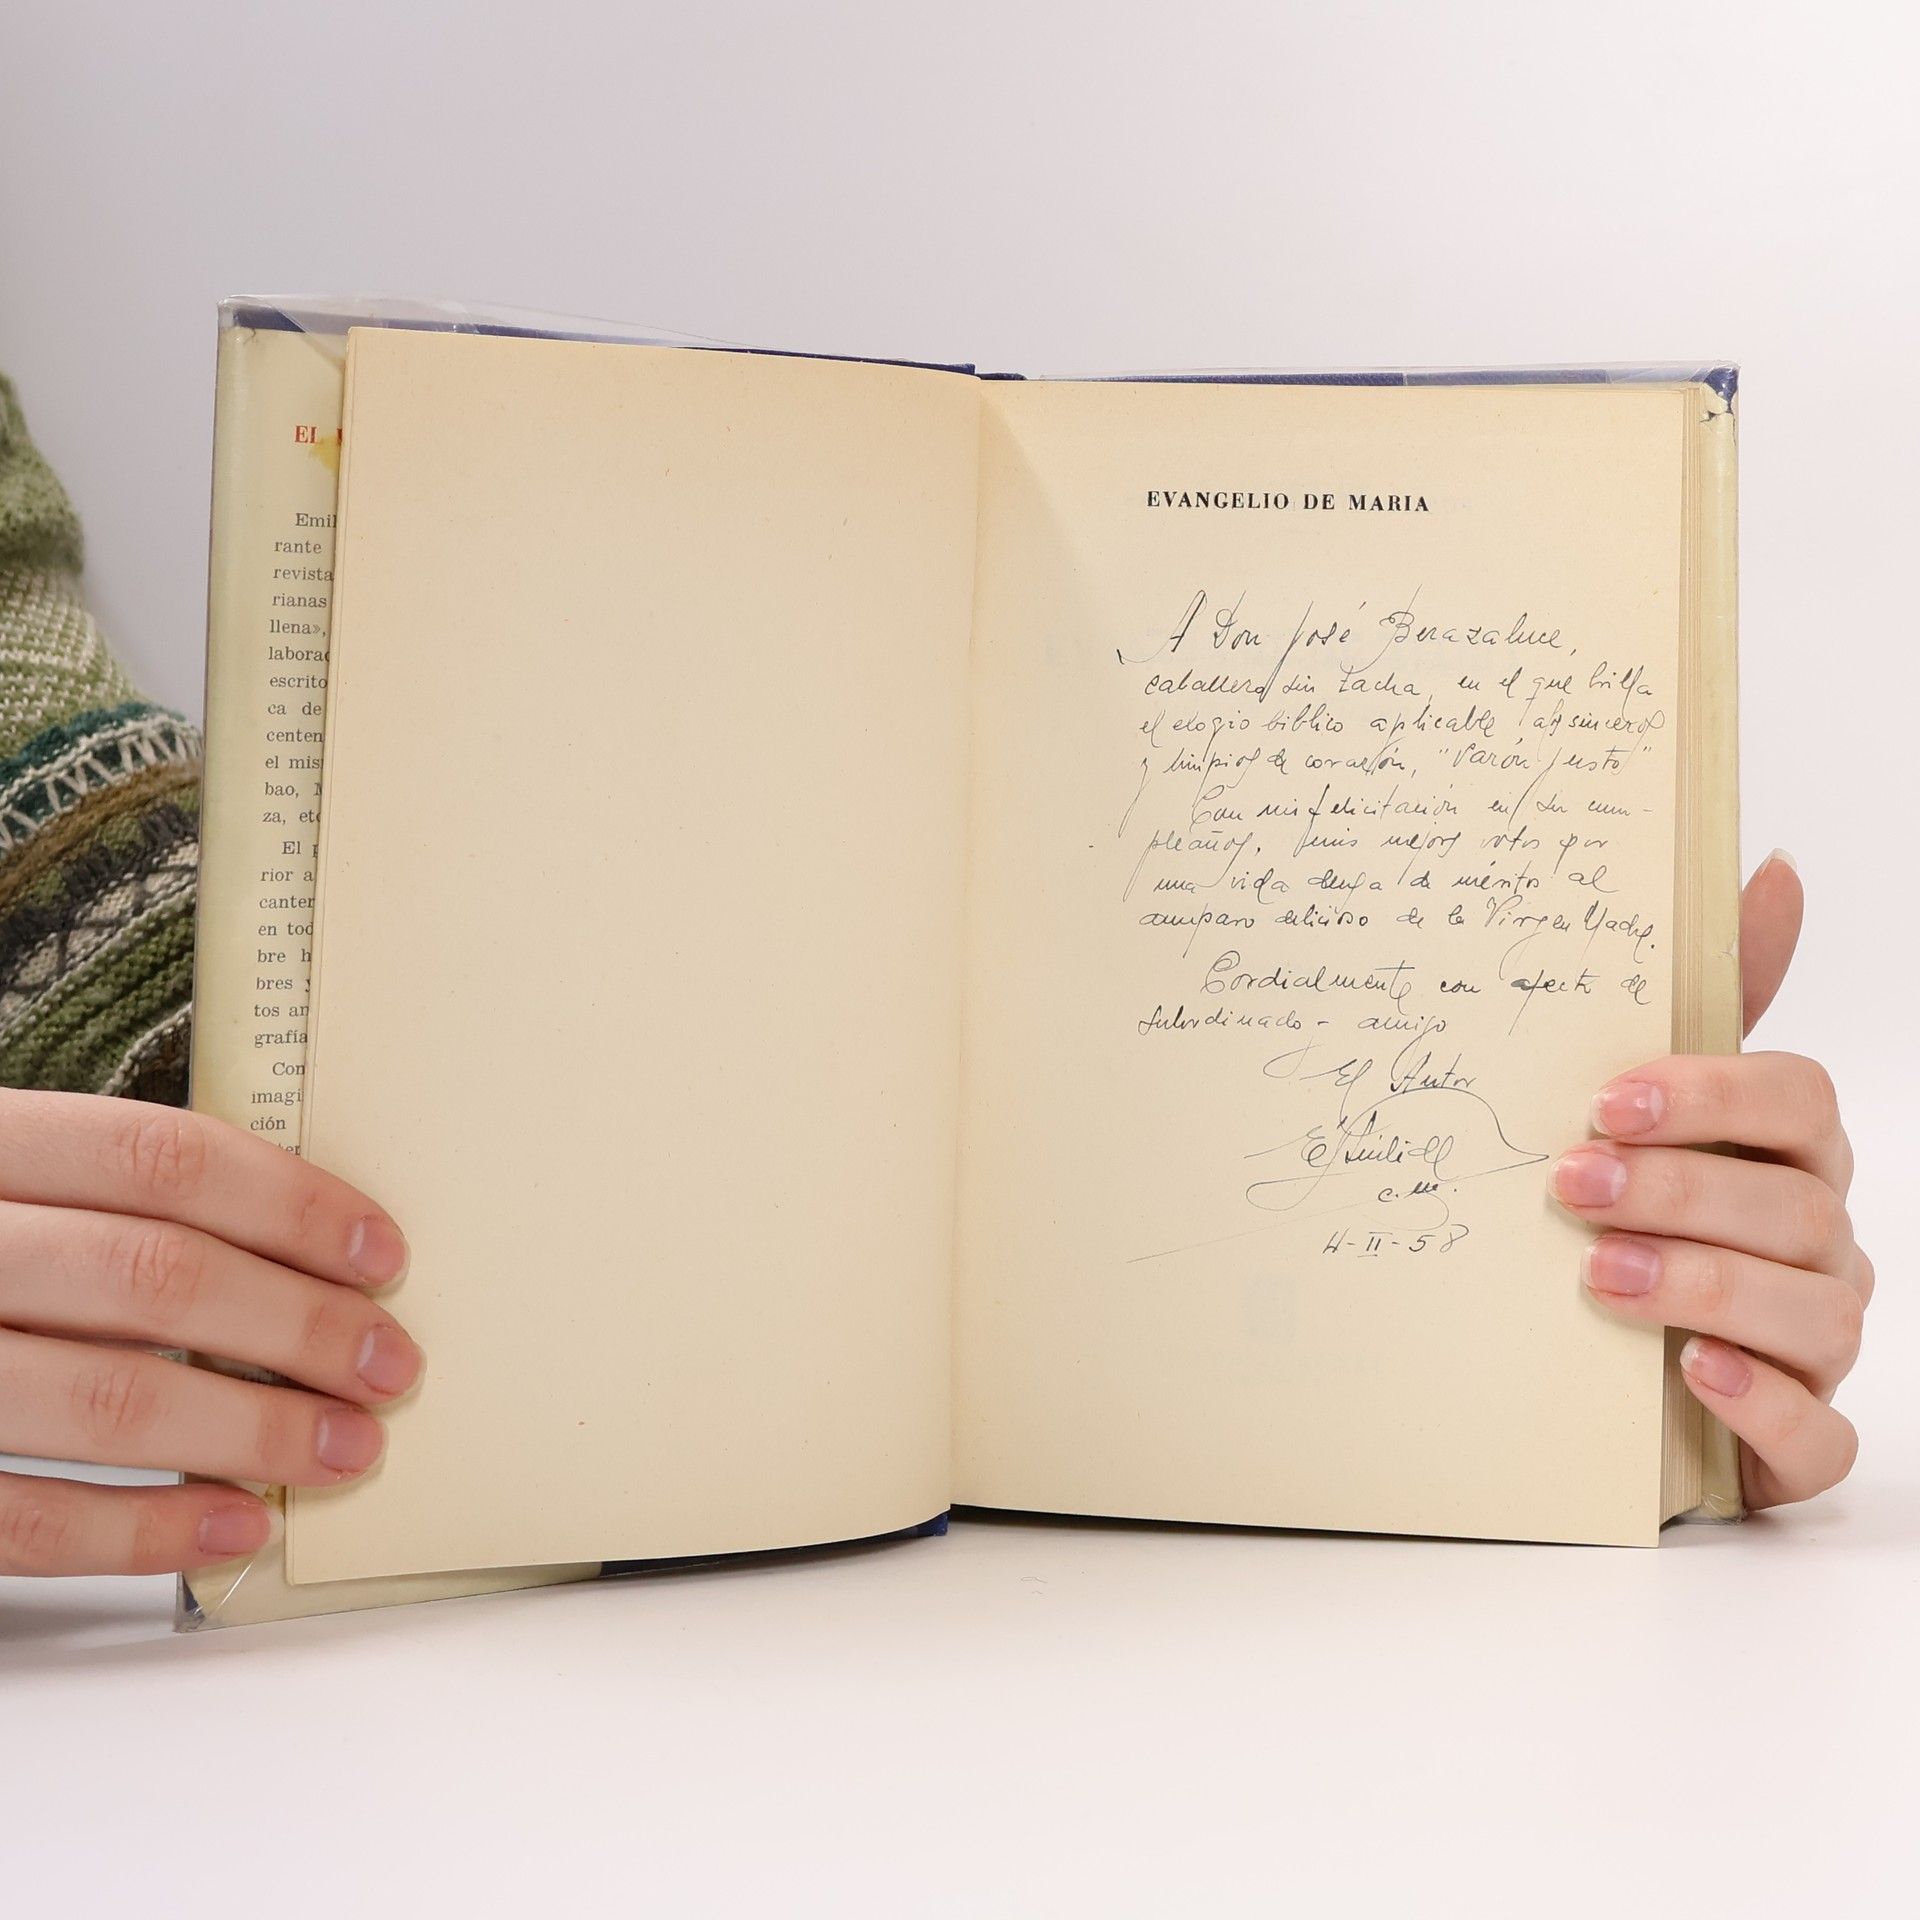 EL
Emil
rante
revista
rianas
llena»,
laborac
escrito
ca de
centen
el mis
bao, M
za, etc
El p
rior a
canter
en tod
bre h
bres y
tos an
grafía
Con
imagi
ción
ter
EVANGELIO DE MARIA
A Don José Berazaluce,
caballero sin tacha, en el que brilla
el elogio biblico aplicable a los sinceros
y limpios de corazón, "Varón justo"
Con mi felicitación en su cum-
pleaños, y mis mejores votos por
una vida llena de méritos al
amparo delicioso de la Virgen Madre.
Cordialmente con afecto de
subordinado - amigo
El Autor
c.m.
4-II-58